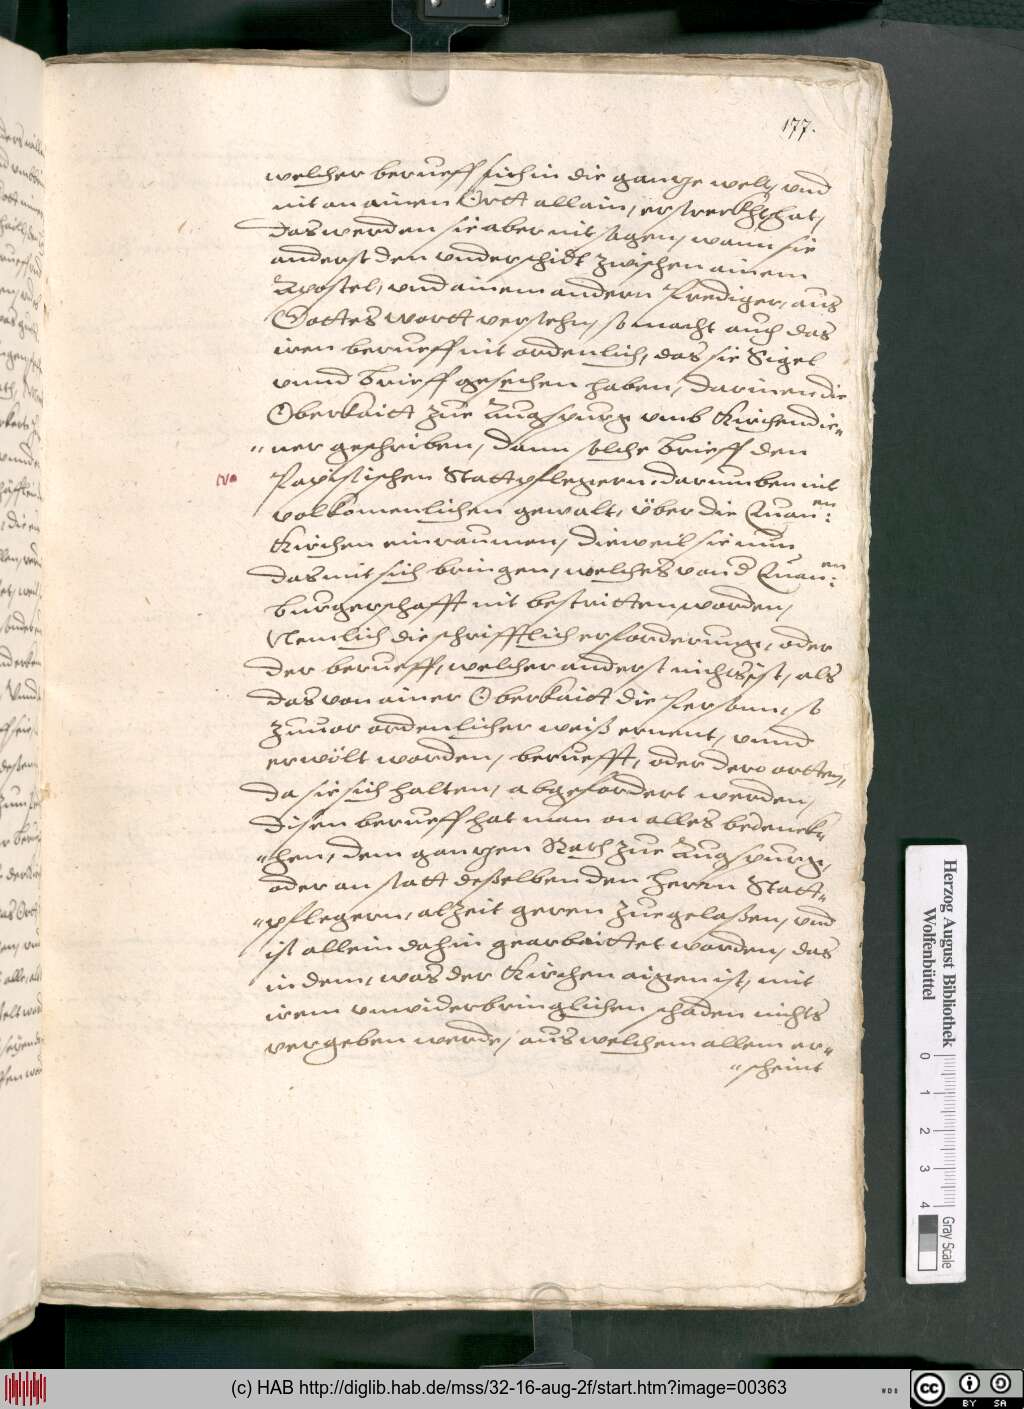 177.
welcher berueff sich in die gantze welt, vnd
nit an ainen Ortt allain, erstreckht hat,
das werden sie aber nit sagen, wann sie
anderst den vnderschidt zwischen ainem
Apostel, vnd ainem andern Prediger, aus
Gottes wortt verstehn, so macht auch das
iren berueff nit ordenlich, das sie Sigel
vnnd Brieff gesechen haben, darinen die
Oberkaitt zue Augspurg vmb Kirchendie-
"ner geschriben, dann solche Brieff den
Papistischen Stattpflegern, darumben nit
volkomenlichen gewalt, über die Euan:en
Kirchen einraumen, dieweil sie nun
das mit sich bringen, welches von d Euan:en
burgerschafft nit bestritten worden,
Nemlich die schrifftlich erforderung, oder
der berueff, welcher anderst nichts ist, als
das von ainer Oberkaitt die Person, so
zuuor ordenlicher weiß ernent, vnnd
erwölt worden, beruefft, oder dero ortten,
da sie sich halten, abgefordert werden,
disen berueff hat man on alles bedenckh-
"hen, dem gantzen Rath zue Augspurg,
oder an statt deßelben den Herrn Statt-
"pflegern, alzeit geren zuegelaßen, vnd
ist allein dahin gearbaittet worden, das
in dem, was der Kirchen aigen ist, mit
irem vnwiderbringlichen schaden nichts
vergeben werde, aus welchem allem er-
"scheint
Herzog August Bibliothek
Wolfenbüttel
0 1 2 3 4
Gray Scale
(c) HAB http://diglib.hab.de/mss/32-16-aug-2f/start.htm?image=00363
WDB
cc BY SA